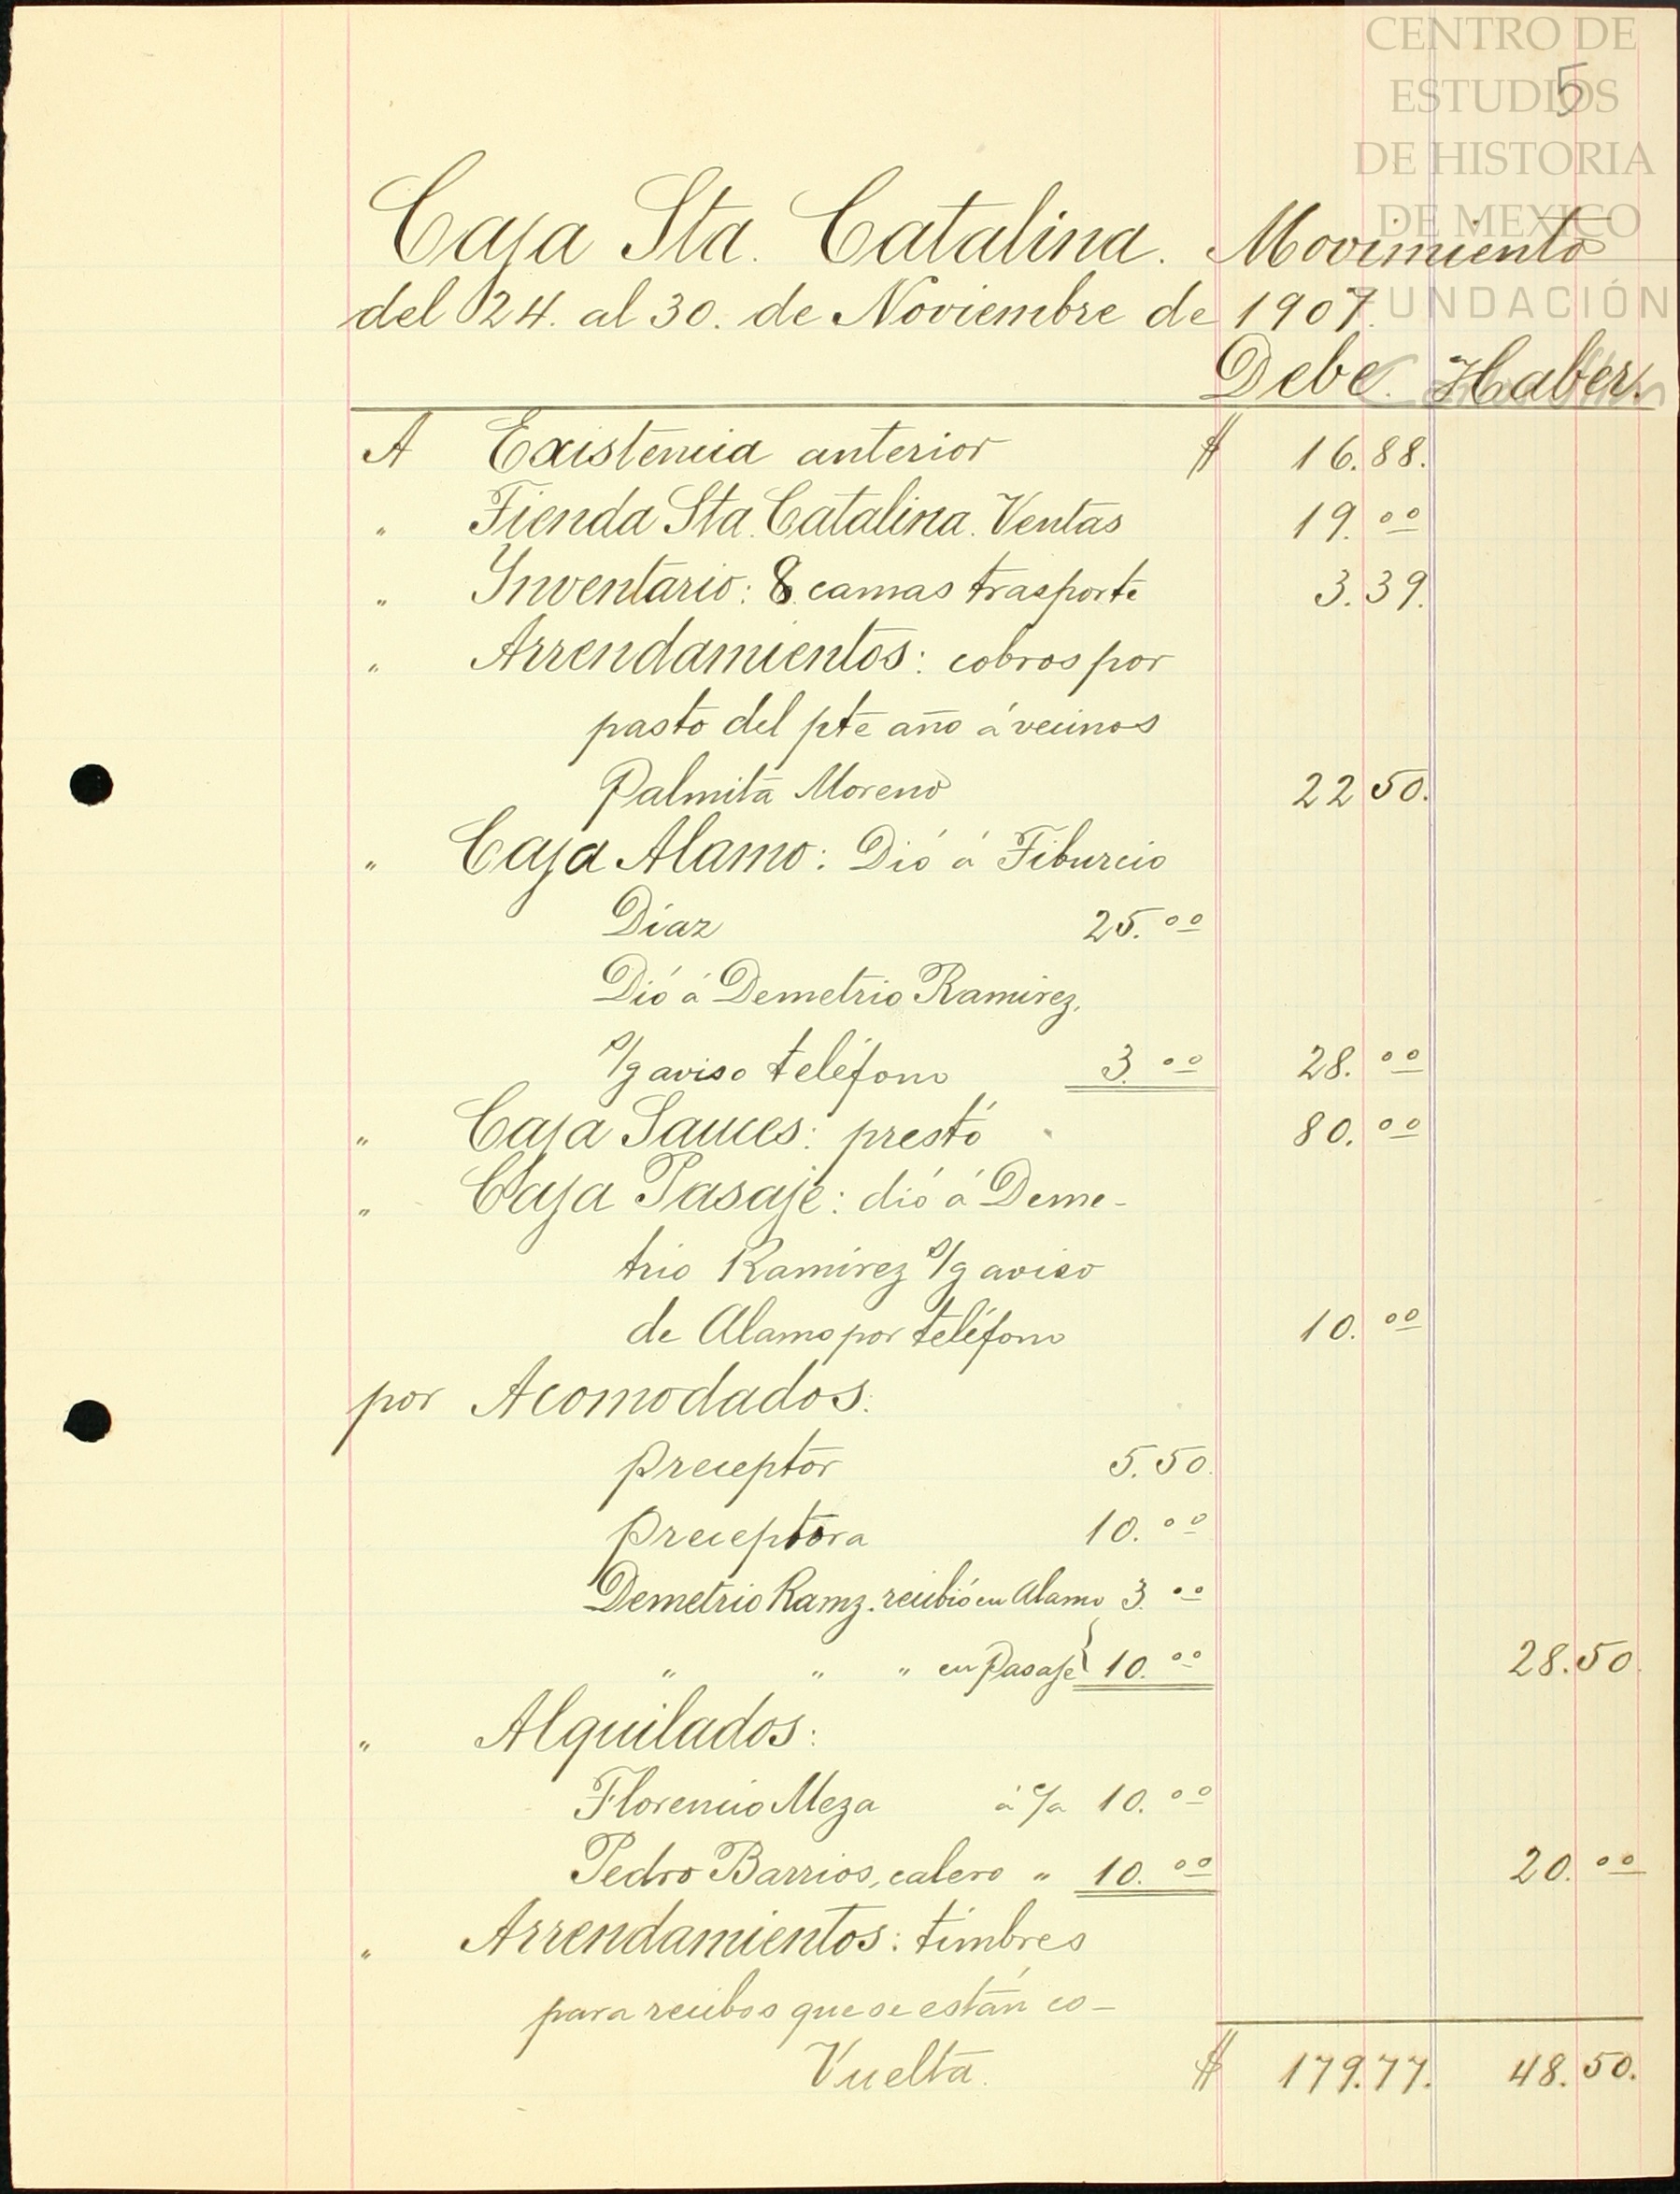 CENTRO DE
ESTUDIOS
DE HISTORIA
DE MEXICO
FUNDACIÓN
5
Caja Sta. Catalina. Movimiento
del 24. al 30. de Noviembre de 1907.
Debe. Haber.
A Existencia anterior $ 16.88.
" Tienda Sta. Catalina. Ventas 19.00
" Inventario: 8 camas trasporte 3.39.
" Arrendamientos: cobros por
pasto del pte año á vecinos
Palmita Moreno 22 50.
" Caja Alamo: Dió á Tiburcio
Díaz 25.00
Dió á Demetrio Ramirez,
s/g aviso teléfono 3.00 28.00
" Caja Sauces: prestó 80.00
" Caja Pasaje: dió á Deme-
trio Ramirez s/g aviso
de Alamo por teléfono 10.00
por Acomodados:
preceptor 5.50.
preceptora 10.00
Demetrio Ramz. recibió en Alamo 3.00
" " " en Pasaje 10.00 28.50.
" Alquilados:
Florencio Meza á c/a 10.00
Pedro Barrios, calero " 10.00 20.00
" Arrendamientos: timbres
para recibos que se están co-
Vuelta. $ 179.77. 48.50.